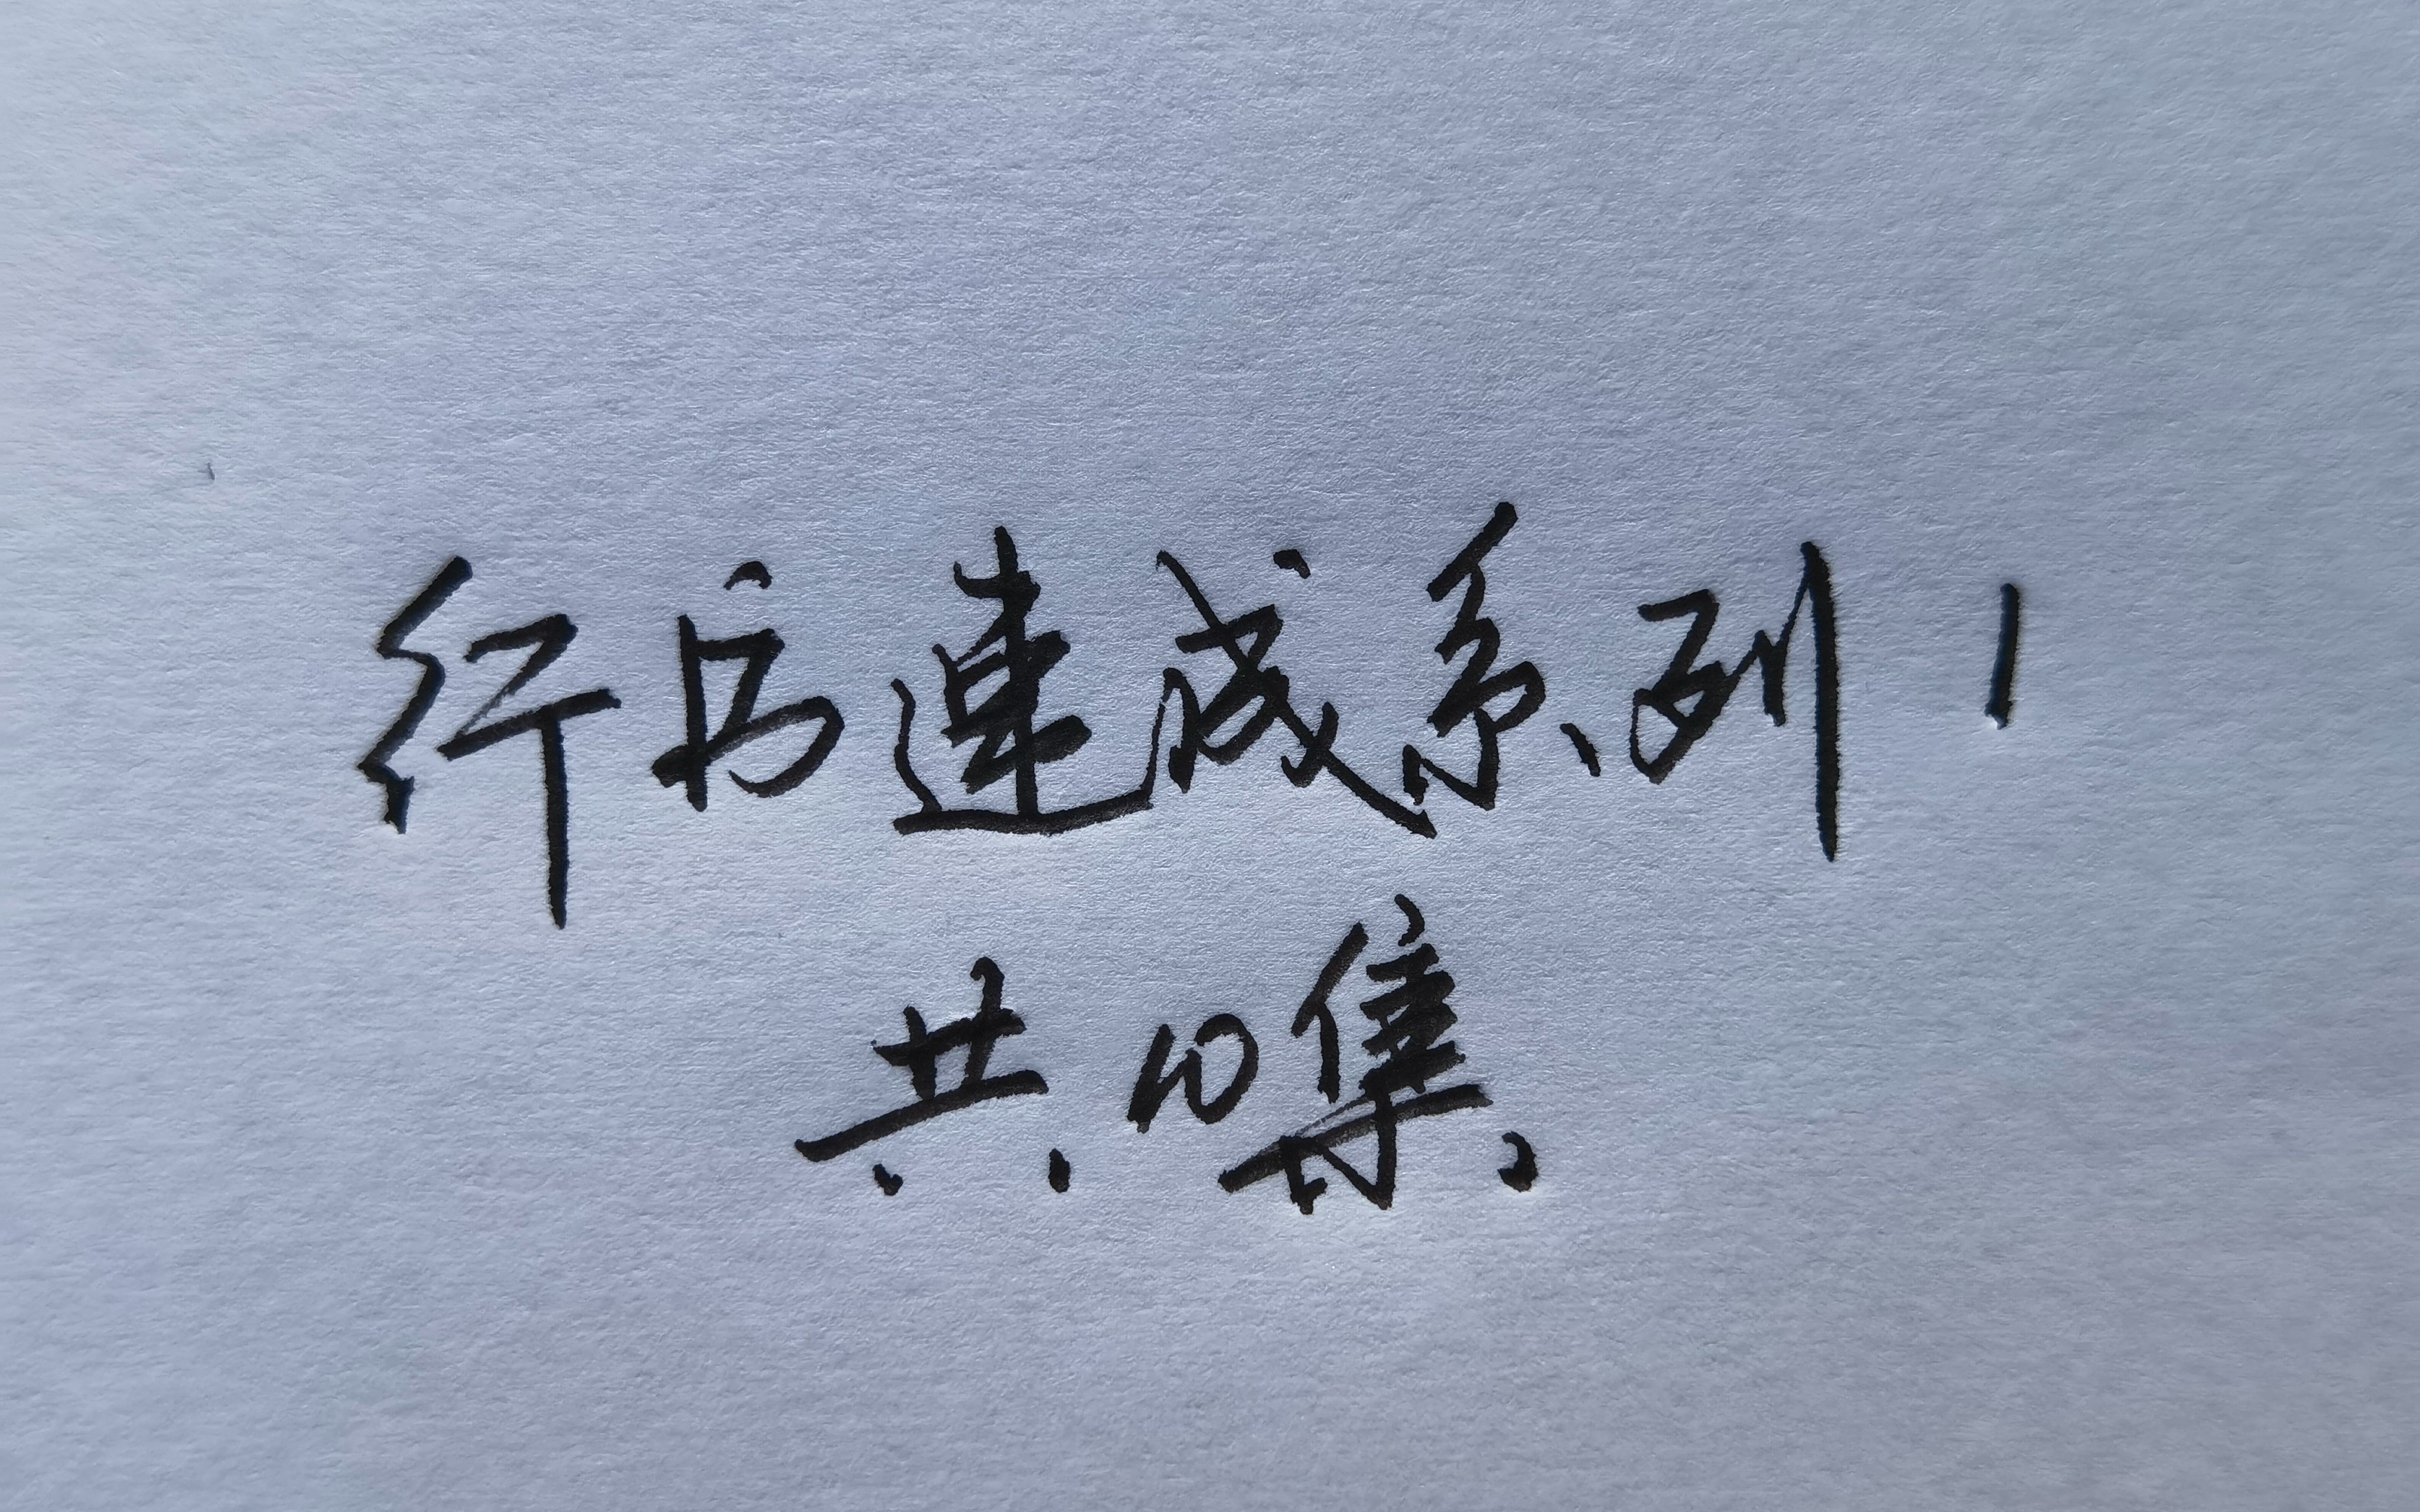 行书速成系列1
共10集